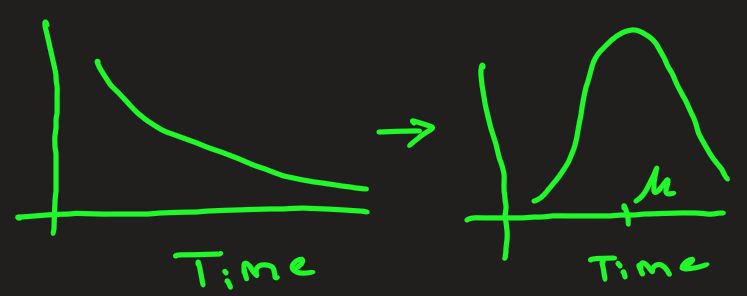 μ
Time
Time